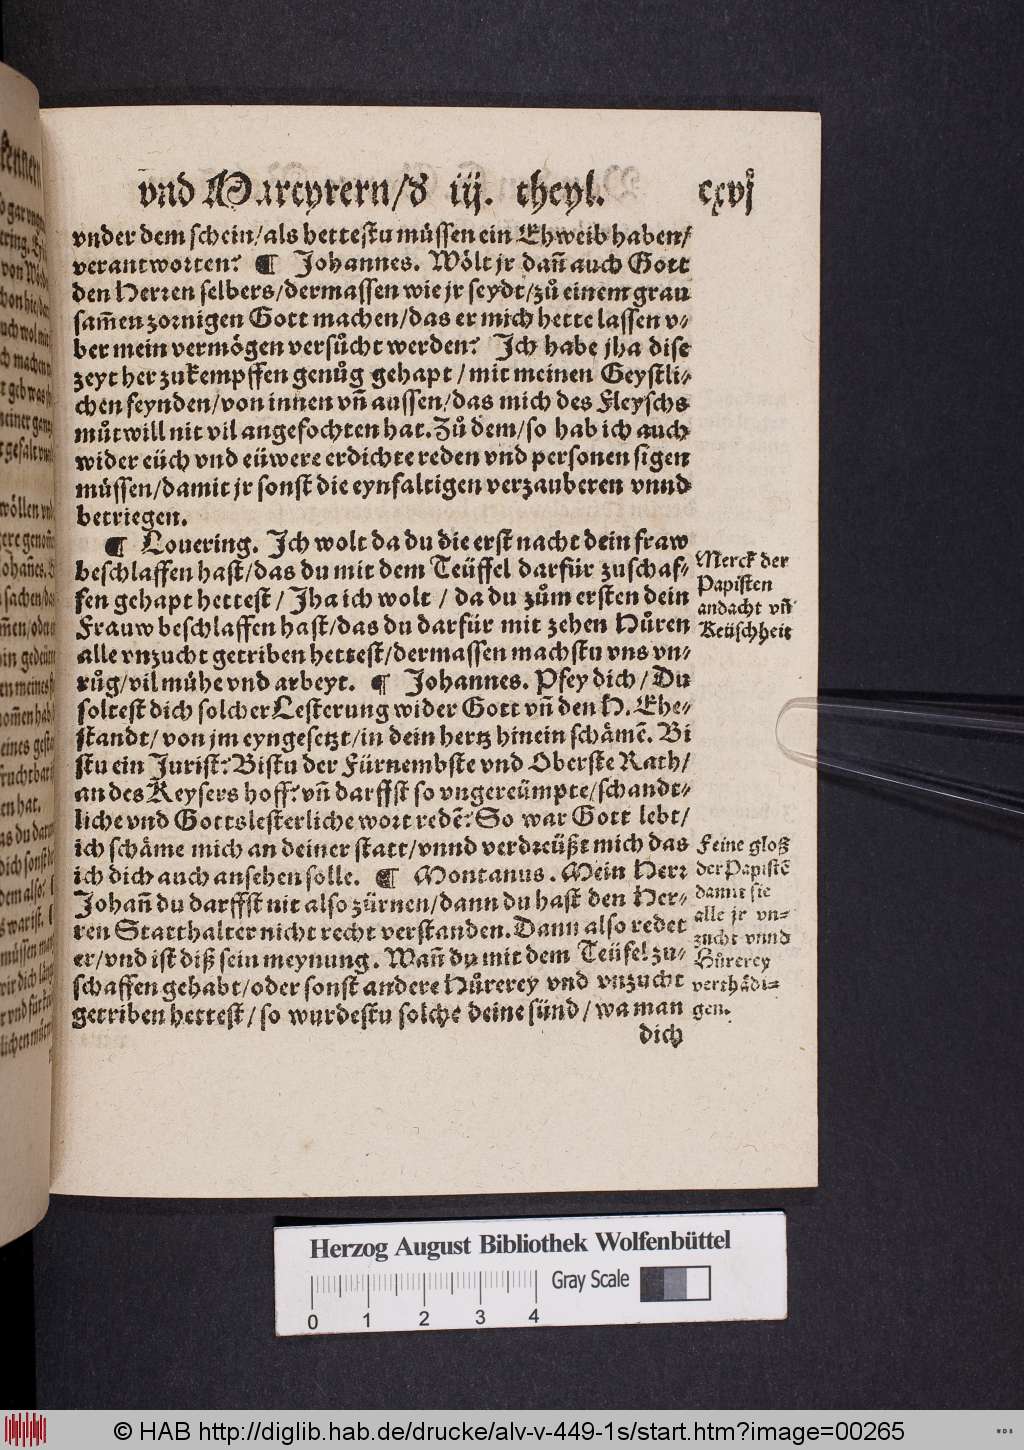 vnd Martyrern/d iij. theyl. cxvj
vnder dem schein/als hettestu müssen ein Ehweib haben/
verantworten? ¶ Johannes. Wölt jr dañ auch Gott
den Herren selbers/dermassen wie jr seydt/zů einem grau
sam̃en zornigen Gott machen/das er mich hette lassen v⸗
ber mein vermögen versůcht werden? Jch habe jha dise
zeyt her zukempffen genůg gehapt/mit meinen Geystli⸗
chen feynden/von innen vñ aussen/das mich des Fleyschs
můtwill nit vil angefochten hat. Zů dem/so hab ich auch
wider eüch vnd eüwere erdichte reden vnd personen sigen
müssen/damit jr sonst die eynfaltigen verzauberen vnnd
betriegen.
¶ Louering. Jch wolt da du die erst nacht dein fraw
beschlaffen hast/das du mit dem Teüffel darfür zuschaf⸗
fen gehapt hettest/Jha ich wolt/da du zům ersten dein
Frauw beschlaffen hast/das du darfür mit zehen Hůren
alle vnzucht getriben hettest/dermassen machstu vns vn⸗
růg/vil mühe vnd arbeyt. ¶ Johannes. Pfey dich/Du
soltest dich solcher Lesterung wider Gott vñ den H. Ehe⸗
standt/von jm eyngesetzt/in dein hertz hinein schämẽ. Bi
stu ein Jurist? Bistu der Fürnembste vnd Oberste Rath/
an des Keysers hoff? vñ darffst so vngereümpte/schandt⸗
liche vnd Gottslesterliche wort redẽ? So war Gott lebt/
ich schäme mich an deiner statt/vnnd verdreüßt mich das
ich dich auch ansehen solle. ¶ Montanus. Mein Herr
Johañ du darffst nit also zürnen/dann du hast den Her⸗
ren Statthalter nicht recht verstanden. Dann also redet
er/vnd ist diß sein meynung. Wañ du mit dem Teüfel zu⸗
schaffen gehabt/oder sonst andere Hůrerey vnd vnzucht
getriben hettest/so wurdestu solche deine sünd/wa man
dich
Merck der
Papisten
andacht vñ
Keüschheit
Feine gloß
der Papistẽ
damit sie
alle jr vn⸗
zucht vnnd
Hůrerey
verthädi⸗
gen.
Herzog August Bibliothek Wolfenbüttel
Gray Scale
0 1 2 3 4
© HAB http://diglib.hab.de/drucke/alv-v-449-1s/start.htm?image=00265